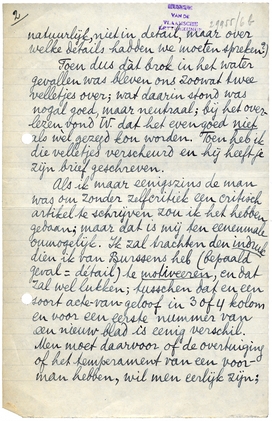 2
EIGENDOM
VAN DE
VLAAMSCHE
21955/66
natuurlijk niet in detail, maar over
welke details hadden we moeten spreken?)
Toen dus dàt brok in het water
gevallen was bleven ons zoowat twee
velletjes over; wat daarin stond was
nogal goed, maar neutraal; bij het over-
lezen vond W dat het evengoed niet
als wel gezegd kon worden. Toen heb ik
die velletjes verscheurd en hij heeft je
zijn brief geschreven.
Als ik maar eenigszins de man
was om zonder zelfcritiek een critisch
artikel te schrijven zou ik het hebben
gedaan; maar dat is mij ten eenenmale
onmogelijk. Ik zal trachten den indruk
dien ik van Burssens heb (bepaald
geval = détail) te motiveeren, en dat
zal wel lukken; tusschen dat en een
soort acte-van-geloof in 3 of 4 kolom
en voor een eerste nummer van
een nieuw blad is eenig verschil.
Men moet daarvoor of de overtuiging
of het temperament van een voor-
man hebben, wil men eerlijk zijn;